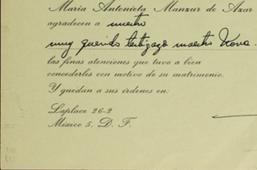 Maria Antonieta Manzur de Azar
agradecen a nuestro
muy querido maestro
las finas atenciones que tuvo a bien
concederles con motivo de su matrimonio.
Y quedan a sus órdenes en:
Laplace 26-2
México 5, D. F.